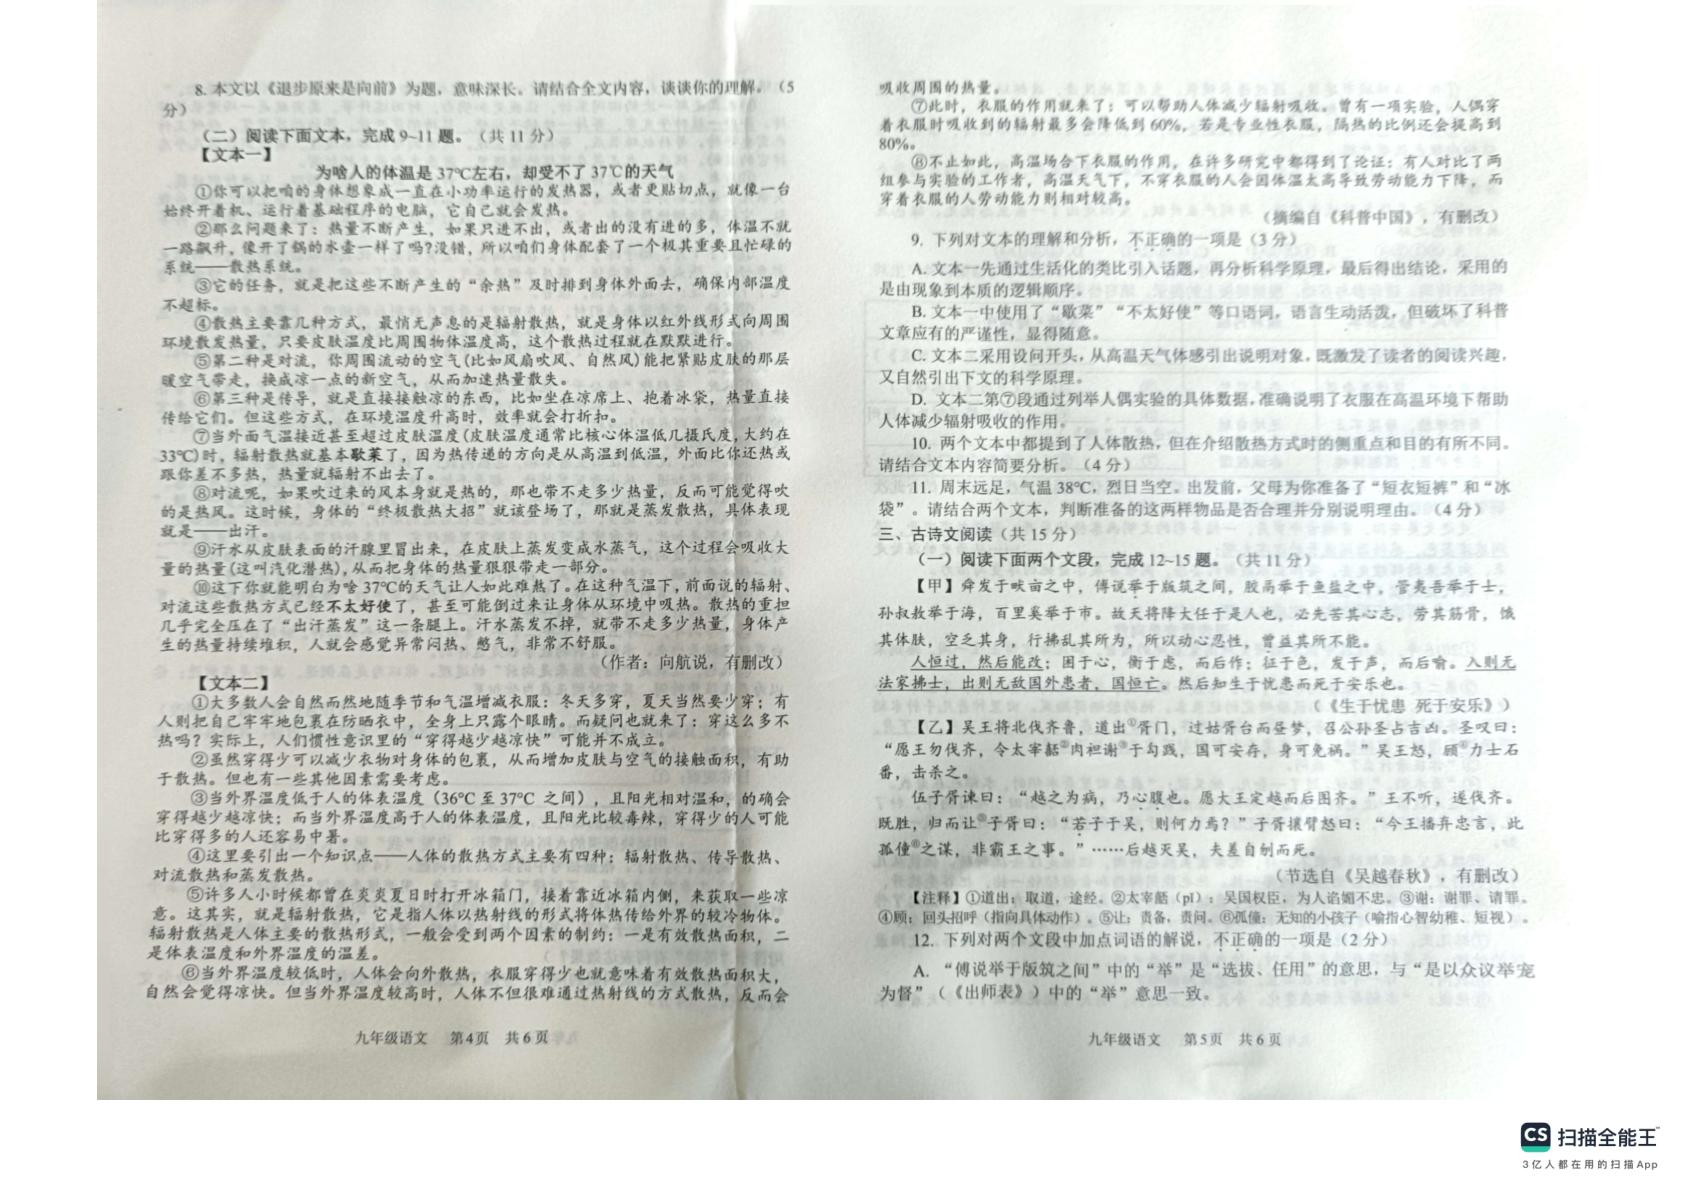 8. 本文以《退步原来是向前》为题，意味深长。请结合全文内容，谈谈你的理解。（5
分）
（二）阅读下面文本，完成 9~11 题。（共 11 分）
【文本一】
为啥人的体温是 37℃左右，却受不了 37℃的天气
①你可以把咱的身体想象成一直在小功率运行的发热器，或者更贴切点，就像一台
始终开着机、运行着基础程序的电脑，它自己就会发热。
②那么问题来了：热量不断产生，如果只进不出，或者出的没有进的多，体温不就
一路飙升，像开了锅的水壶一样了吗?没错，所以咱们身体配套了一个极其重要且忙碌的
系统——散热系统。
③它的任务，就是把这些不断产生的“余热”及时排到身体外面去，确保内部温度
不超标。
④散热主要靠几种方式，最悄无声息的是辐射散热，就是身体以红外线形式向周围
环境散发热量，只要皮肤温度比周围物体温度高，这个散热过程就在默默进行。
⑤第二种是对流，你周围流动的空气(比如风扇吹风、自然风)能把紧贴皮肤的那层
暖空气带走，换成凉一点的新空气，从而加速热量散失。
⑥第三种是传导，就是直接接触凉的东西，比如坐在凉席上、抱着冰袋，热量直接
传给它们。但这些方式，在环境温度升高时，效率就会打折扣。
⑦当外面气温接近甚至超过皮肤温度(皮肤温度通常比核心体温低几摄氏度,大约在
33℃)时，辐射散热就基本歇菜了，因为热传递的方向是从高温到低温，外面比你还热或
跟你差不多热，热量就辐射不出去了。
⑧对流呢，如果吹过来的风本身就是热的，那也带不走多少热量，反而可能觉得吹
的是热风。这时候，身体的“终极散热大招”就该登场了，那就是蒸发散热，具体表现
就是——出汗。
⑨汗水从皮肤表面的汗腺里冒出来，在皮肤上蒸发变成水蒸气，这个过程会吸收大
量的热量(这叫汽化潜热),从而把身体的热量狠狠带走一部分。
⑩这下你就能明白为啥 37℃的天气让人如此难熬了。在这种气温下,前面说的辐射、
对流这些散热方式已经不太好使了，甚至可能倒过来让身体从环境中吸热。散热的重担
几乎完全压在了“出汗蒸发”这一条腿上。汗水蒸发不掉，就带不走多少热量，身体产
生的热量持续堆积，人就会感觉异常闷热、憋气，非常不舒服。
（作者：向航说，有删改）
【文本二】
①大多数人会自然而然地随季节和气温增减衣服：冬天多穿，夏天当然要少穿；有
人则把自己牢牢地包裹在防晒衣中，全身上只露个眼睛。而疑问也就来了：穿这么多不
热吗？实际上，人们惯性意识里的“穿得越少越凉快”可能并不成立。
②虽然穿得少可以减少衣物对身体的包裹，从而增加皮肤与空气的接触面积，有助
于散热。但也有一些其他因素需要考虑。
③当外界温度低于人的体表温度（36℃ 至 37℃ 之间），且阳光相对温和，的确会
穿得越少越凉快；而当外界温度高于人的体表温度，且阳光比较毒辣，穿得少的人可能
比穿得多的人还容易中暑。
④这里要引出一个知识点——人体的散热方式主要有四种：辐射散热、传导散热、
对流散热和蒸发散热。
⑤许多人小时候都曾在炎炎夏日时打开冰箱门，接着靠近冰箱内侧，来获取一些凉
意。这其实，就是辐射散热，它是指人体以热射线的形式将体热传给外界的较冷物体。
辐射散热是人体主要的散热形式，一般会受到两个因素的制约：一是有效散热面积，二
是体表温度和外界温度的温差。
⑥当外界温度较低时，人体会向外散热，衣服穿得少也就意味着有效散热面积大，
自然会觉得凉快。但当外界温度较高时，人体不但很难通过热射线的方式散热，反而会
九年级语文 第4页 共 6 页
吸收周围的热量。
⑦此时，衣服的作用就来了：可以帮助人体减少辐射吸收。曾有一项实验，人偶穿
着衣服时吸收到的辐射最多会降低到 60%，若是专业性衣服，隔热的比例还会提高到
80%。
⑧不止如此，高温场合下衣服的作用，在许多研究中都得到了论证：有人对比了两
组参与实验的工作者，高温天气下，不穿衣服的人会因体温太高导致劳动能力下降，而
穿着衣服的人劳动能力则相对较高。
（摘编自《科普中国》，有删改）
9. 下列对文本的理解和分析，不正确的一项是（3 分）
A. 文本一先通过生活化的类比引入话题，再分析科学原理，最后得出结论，采用的
是由现象到本质的逻辑顺序。
B. 文本一中使用了“歇菜”“不太好使”等口语词，语言生动活泼，但破坏了科普
文章应有的严谨性，显得随意。
C. 文本二采用设问开头，从高温天气体感引出说明对象，既激发了读者的阅读兴趣，
又自然引出下文的科学原理。
D. 文本二第⑦段通过列举人偶实验的具体数据，准确说明了衣服在高温环境下帮助
人体减少辐射吸收的作用。
10. 两个文本中都提到了人体散热，但在介绍散热方式时的侧重点和目的有所不同。
请结合文本内容简要分析。（4 分）
11. 周末远足，气温 38℃，烈日当空。出发前，父母为你准备了“短衣短裤”和“冰
袋”。请结合两个文本，判断准备的这两样物品是否合理并分别说明理由。（4 分）
三、古诗文阅读（共 15 分）
（一）阅读下面两个文段，完成 12~15 题。（共 11 分）
【甲】舜发于畎亩之中，傅说举于版筑之间，胶鬲举于鱼盐之中，管夷吾举于士，
孙叔敖举于海，百里奚举于市。故天将降大任于是人也，必先苦其心志，劳其筋骨，饿
其体肤，空乏其身，行拂乱其所为，所以动心忍性，曾益其所不能。
人恒过，然后能改；困于心，衡于虑，而后作；征于色，发于声，而后喻。入则无
法家拂士，出则无敌国外患者，国恒亡。然后知生于忧患而死于安乐也。
（《生于忧患 死于安乐》）
【乙】吴王将北伐齐鲁，道出①胥门，过姑胥台而昼梦，召公孙圣占吉凶。圣叹曰：
“愿王勿伐齐，令太宰嚭②肉袒谢③于勾践，国可安存，身可免祸。”吴王怒，顾④力士石
番，击杀之。
伍子胥谏曰：“越之为病，乃心腹也。愿大王定越而后图齐。”王不听，遂伐齐。
既胜，归而让⑤子胥曰：“若子于吴，则何力焉？”子胥攘臂怒曰：“今王播弃忠言，此
孤僮⑥之谋，非霸王之事。”……后越灭吴，夫差自刎而死。
（节选自《吴越春秋》，有删改）
【注释】①道出：取道，途经。②太宰嚭（pǐ）：吴国权臣，为人谄媚不忠。③谢：谢罪、请罪。
④顾：回头招呼（指向具体动作）。⑤让：责备，责问。⑥孤僮：无知的小孩子（喻指心智幼稚、短视）。
12. 下列对两个文段中加点词语的解说，不正确的一项是（2 分）
A. “傅说举于版筑之间”中的“举”是“选拔、任用”的意思，与“是以众议举宠
为督”（《出师表》）中的“举”意思一致。
九年级语文 第5页 共 6 页
CS 扫描全能王
3亿人都在用的扫描App